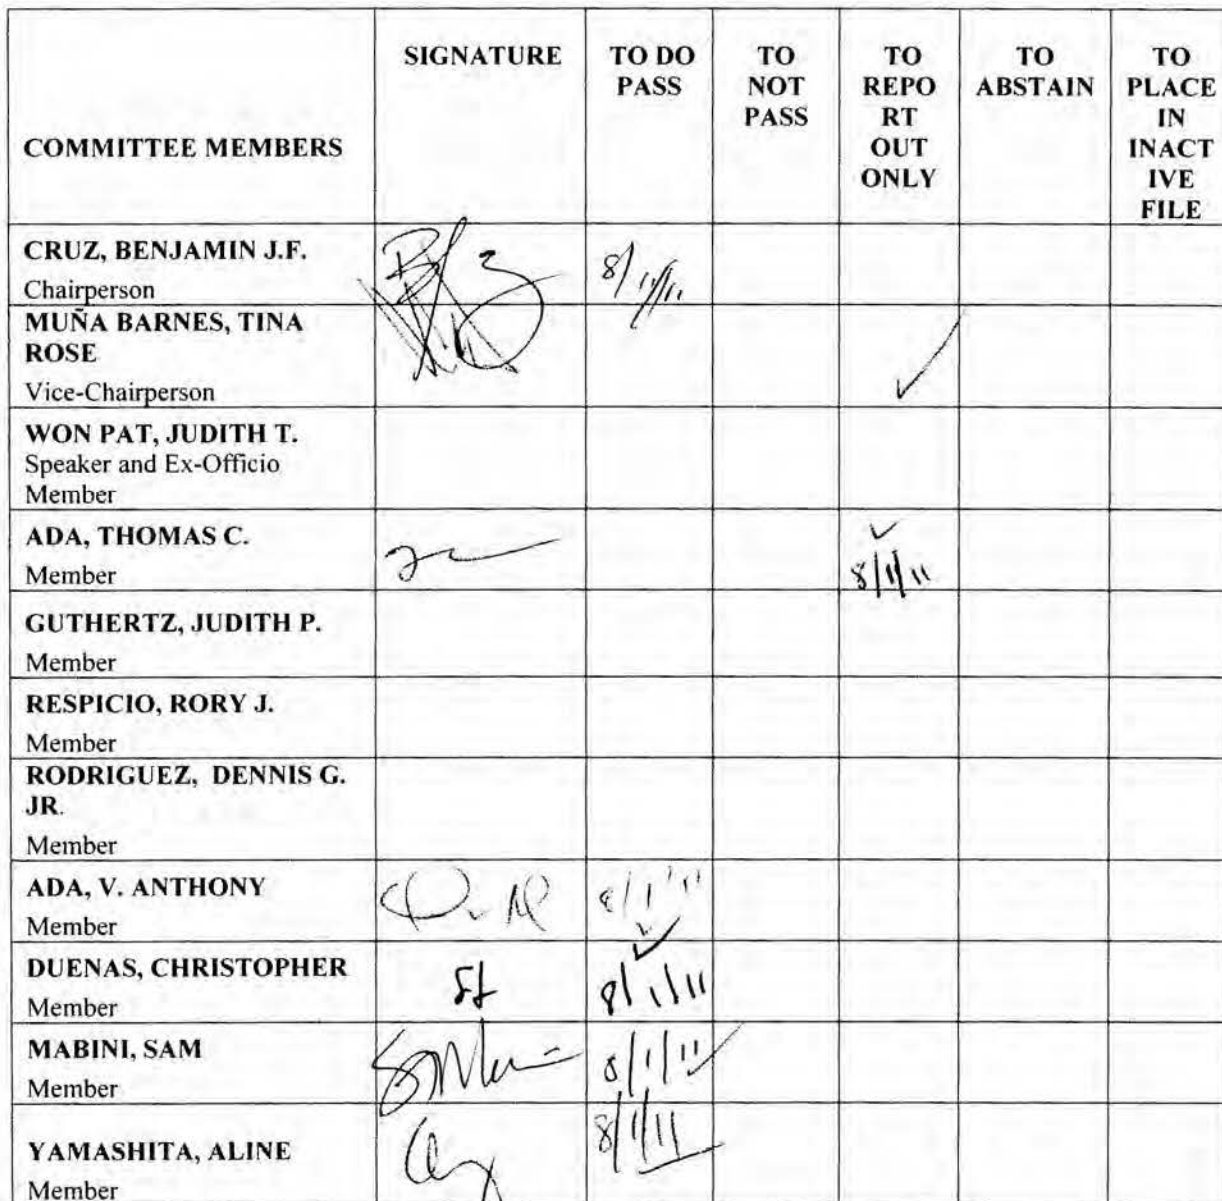 COMMITTEE MEMBERS
SIGNATURE
TO DO
PASS
TO
NOT
PASS
TO
REPO
RT
OUT
ONLY
TO
ABSTAIN
TO
PLACE
IN
INACT
IVE
FILE
CRUZ, BENJAMIN J.F.
Chairperson
8/1/11
MUÑA BARNES, TINA
ROSE
Vice-Chairperson
✓
WON PAT, JUDITH T.
Speaker and Ex-Officio
Member
ADA, THOMAS C.
Member
✓
8/1/11
GUTHERTZ, JUDITH P.
Member
RESPICIO, RORY J.
Member
RODRIGUEZ, DENNIS G.
JR.
Member
ADA, V. ANTHONY
Member
8/1/11
✓
DUENAS, CHRISTOPHER
Member
✓
8/1/11
MABINI, SAM
Member
8/1/11 ✓
YAMASHITA, ALINE
Member
8/1/11